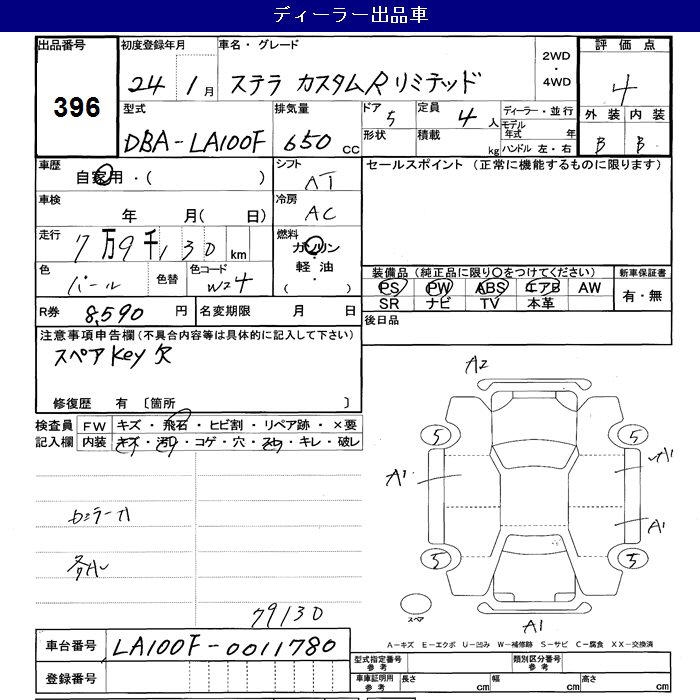 ディーラー出品車
出品番号 初度登録年月 車名・グレード 2WD ・ 4WD 評価点
396 24 1月 ステラ カスタムRリミテッド 4
型式 排気量 ドア 5 定員 4人 ディーラー・並行 外装 内装
DBA-LA100F 650cc 形状 積載 kg モデル年式 年 B B
ハンドル 左・右
車歴 自家用・( ) シフト AT セールスポイント (正常に機能するものに限ります)
車検 年 月( 日) 冷房 AC
走行 7万9千130km 燃料 ガソリン・軽油 ( ・ )
色 パール 色替 色コード W24 装備品 (純正品に限り○をつけてください) 新車保証書
PS PW ABS エアB AW 有・無
SR ナビ TV 本革
R券 8,590円 名変期限 月 日 後日品
注意事項申告欄(不具合内容等は具体的に記入して下さい)
スペアKey欠
修復歴 有 〔箇所 〕
検査員 FW キズ・飛石・ヒビ割・リペア跡・×要
記入欄 内装 キズ・汚れ・コゲ・穴・スレ・キレ・破レ
A2
5 5
A1 A1
A1
5 5
79130
スペア
A1
A-キズ E-エクボ U-凹み W-補修跡 S-サビ C-腐食 XX-交換済
車台番号 LA100F-0011780
登録番号
型式指定番号 参考 類別区分番号 参考
車庫証明用 参考 長さ cm 幅 cm 高さ cm